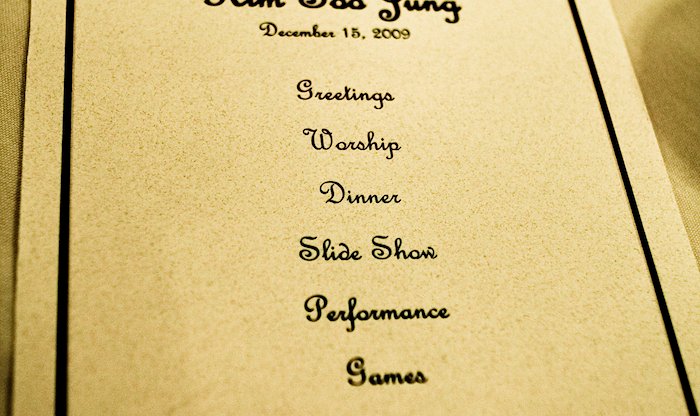 Kim Soo Jung
December 15, 2009
Greetings
Worship
Dinner
Slide Show
Performance
Games